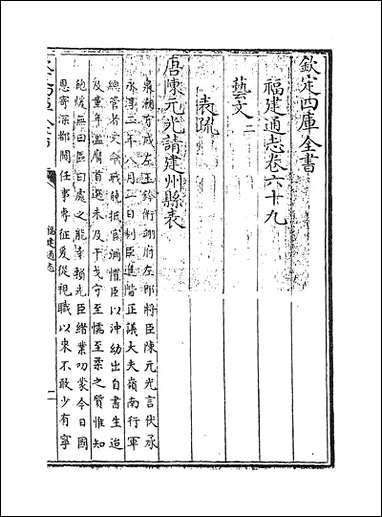 欽定四庫全書
福建通志卷六十九
藝文二
表疏
唐陳元光請建州縣表
泉潮有戍左玉鈐衛翊府左郎將臣陳元光言伏承
永淳二年八月一日制臣進階正議大夫嶺南行軍
總管者受命戰兢抵官彌懼臣以沖幼出自書生迨
及童年濫膺首選未及干戈守至懦至柔之質惟知
飽煖無日區處之能幸賴先臣緒業叨蒙今日國
恩寄深都閫任事專征爰從視職以來不敢少有寧
福建通志